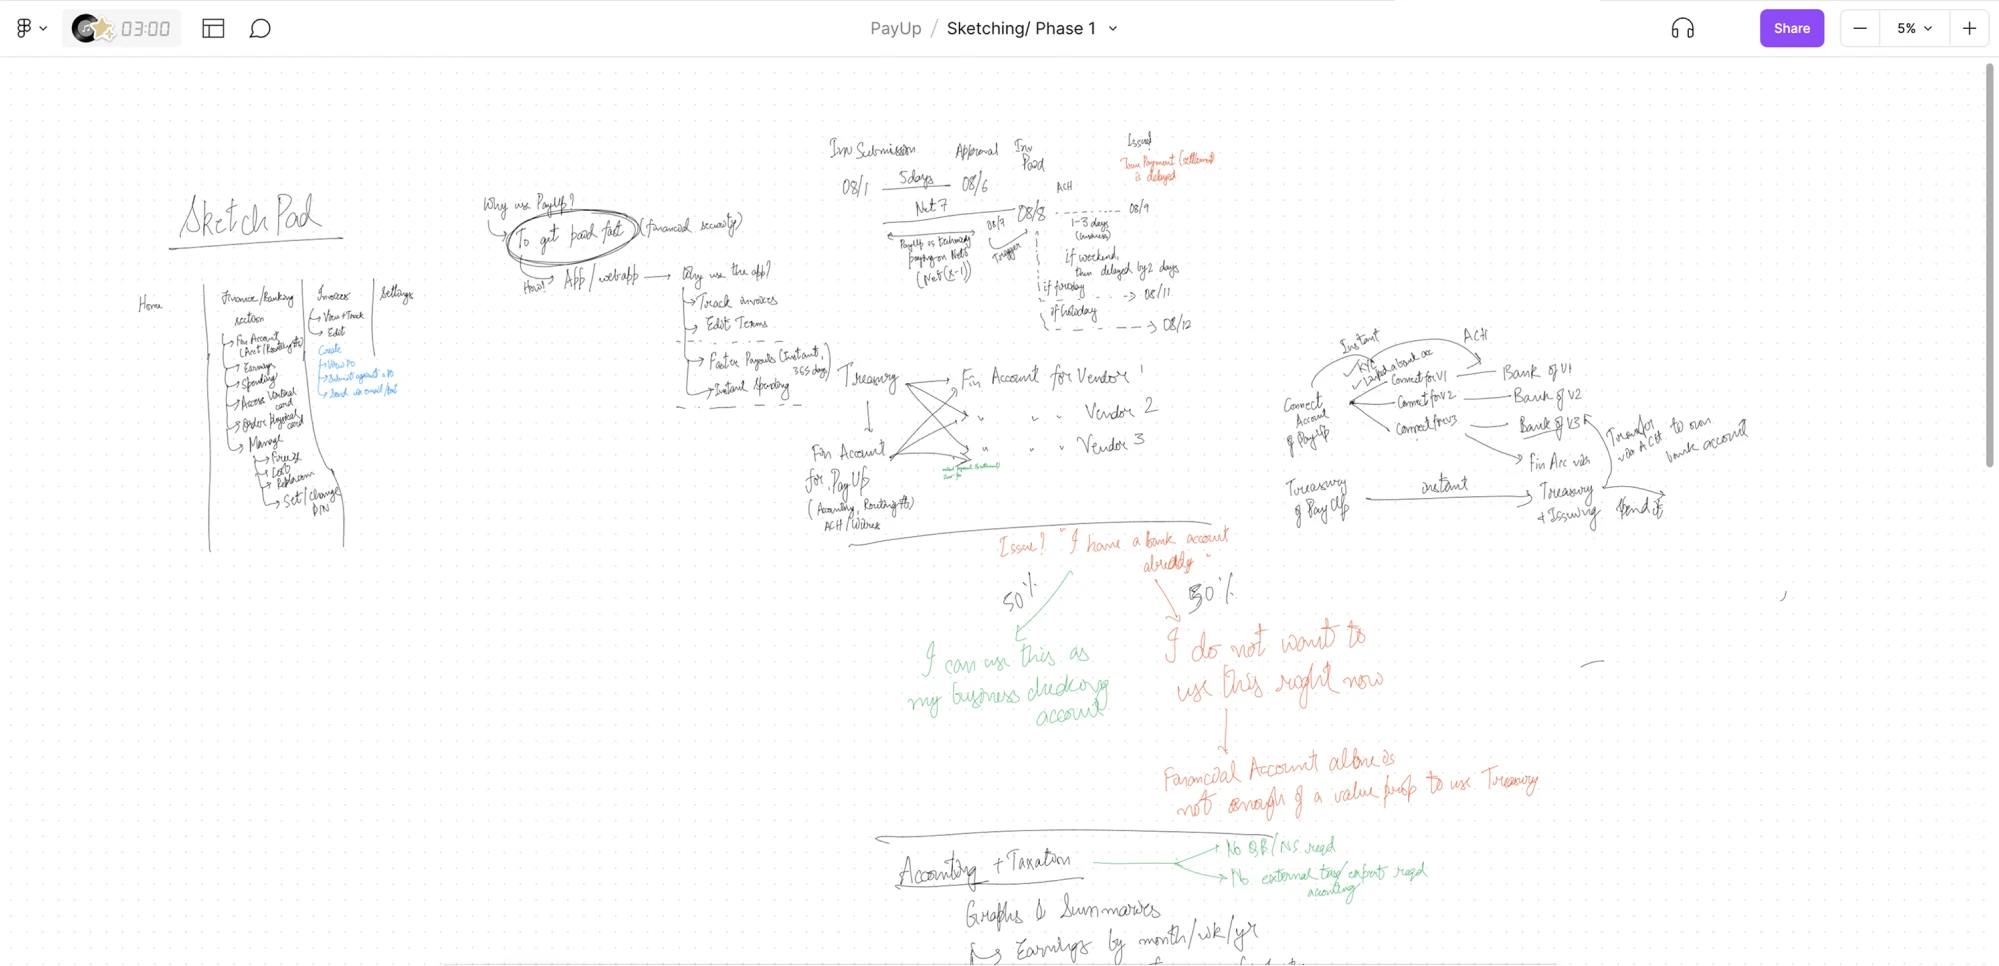 03:00
PayUp / Sketching/ Phase 1
Share
5%
SketchPad
Home
Finance/Banking
section
Fin Account
(Acct/Routing #s)
Earnings
Spending
Access Virtual
card
Order Physical
card
Manage
Freeze
Set/Change
PIN
Invoices
View + Track
Edit
Create
View PO
Submit against a PO
Send via email/text
Settings
Why use PayUp?
To get paid fast (financial security)
How? App/webapp
Why use the app?
Track invoices
Edit Terms
Faster Payouts (Instant,
365 days)
Instant Spending
Inv Submission
Approval
Inv
Paid
Issued
Town Payment (settlement)
is delayed
08/1
5days
08/6
ACH
Net 7
08/7
08/8
08/9
Trigger
1-3 days
(business)
PayUp is technically
paying on Net6
(Net(x-1))
if weekend,
then delayed by 2 days
if friday
08/11
if holiday
08/12
Treasury
Fin Account for Vendor 1
" " " Vendor 2
" " " Vendor 3
Fin Account
for PayUp
(Accounting, Routing #s)
ACH/Wires
Instant
ACH
KYC
Linked a bank acc
Connect
Account
of PayUp
Connect for V1
Bank of V1
Connect for V2
Bank of V2
Connect for V3
Bank of V3
Fin Acc via
Transfer
via ACH to own
bank account
Treasury
of PayUp
instant
Treasury
+ Issuing
Spend it
Issue? "I have a bank account
already"
50%
50%
I can use this as
my business checking
account
I do not want to
use this right now
Financial Account alone is
not enough of a value prop to use Treasury
Accounting + Taxation
No QB/NS reqd
No external tax/expert reqd
accounting
Graphs & Summaries
Earnings by month/wk/yr